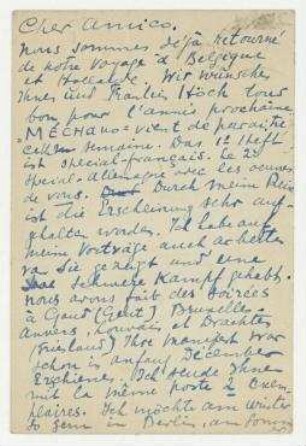 Cher Amico.
Nous sommes déjà retourné
de notre voyage à Belgique
et Hollande. Wir wünschen
Ihnen und Fraulein Höch tous
bon pour l'année prochaine
MECHANO - vient de paraître
semaine. Das 1e Heft
ist special-français. Le 2e
special-allemagne avec les oeuvres
de vous. Durch meine
ist die Erscheinung sehr auf-
gehalten worden. Ich habe auf
meine Vorträge auch arbeiten
van Sie gezeigt und eine
schwere Kampf gehabt.
nous avons fait des soirées
à Gand (Gent) Bruxelles
Anvers, Louvain et Drachten
(Friesland) Ihre Manifest war
schon in anfang December
Erschienen. Ich sende Ihnen
mit la même poste 2 Exem-
plaires. Ich möchte am winter
so gern in Berlin, am